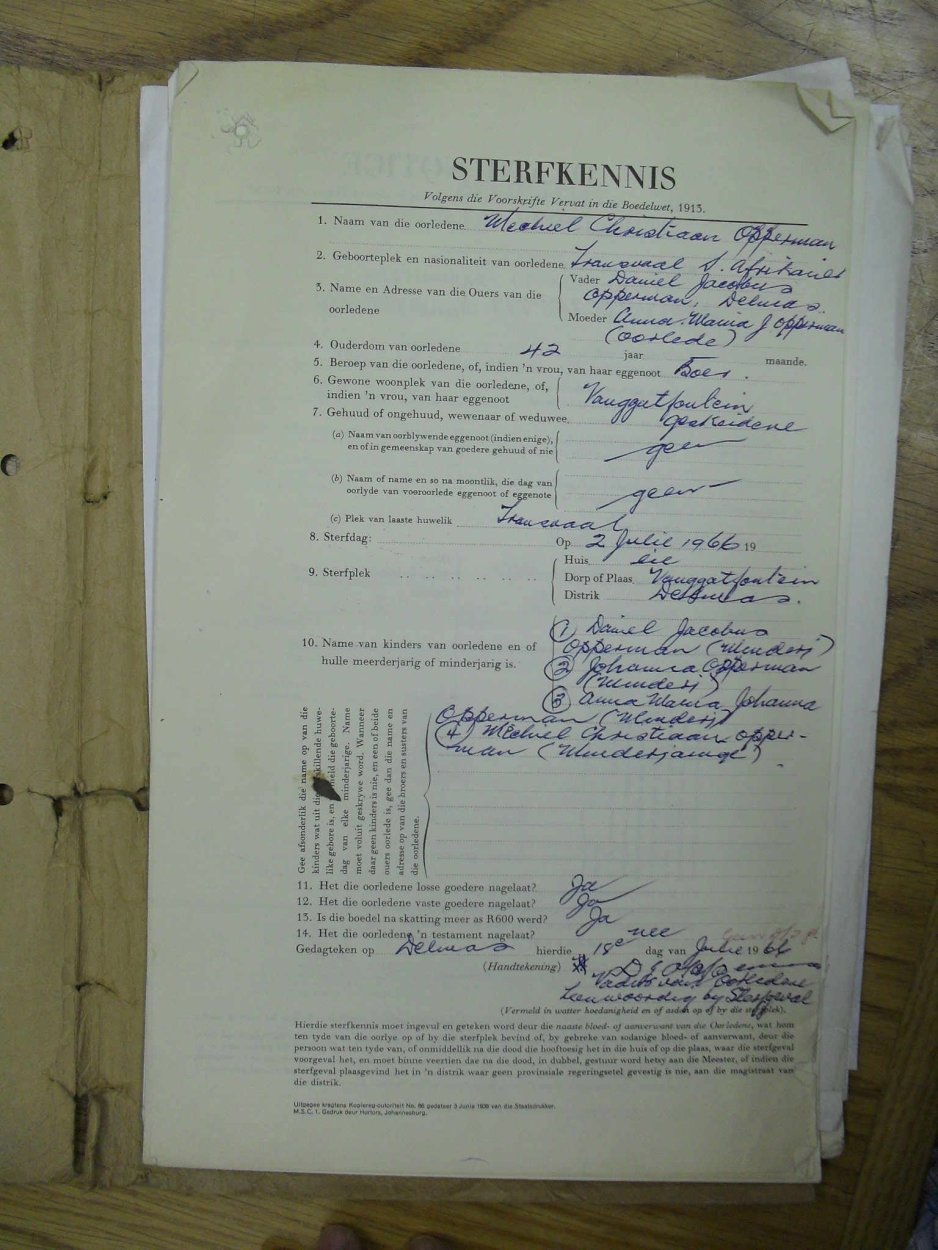 STERFKENNIS
Volgens die Voorskrifte Vervat in die Boedelwet, 1913.
1. Naam van die oorledene Mechiel Christiaan Opperman
2. Geboorteplek en nasionaliteit van oorledene Transvaal S. Afrikaner
3. Name en Adresse van die Ouers van die oorledene
Vader Daniel Jacobus
Opperman, Delmas
Moeder Anna Maria J. Opperman
(oorlede)
4. Ouderdom van oorledene 42 jaar maande.
5. Beroep van die oorledene, of, indien 'n vrou, van haar eggenoot Boer.
6. Gewone woonplek van die oorledene, of,
indien 'n vrou, van haar eggenoot Vanggatfontein
7. Gehuud of ongehuud, wewenaar of weduwee geskeidene
(a) Naam van oorblywende eggenoot (indien enige),
en of in gemeenskap van goedere gehuud of nie geen
(b) Naam of name en so na moontlik, die dag van
oorlyde van vooroorlede eggenoot of eggenote geen
(c) Plek van laaste huwelik Transvaal
8. Sterfdag: Op 2 Julie 1966 19
9. Sterfplek
Huis die
Dorp of Plaas Vanggatfontein
Distrik Delmas.
10. Name van kinders van oorledene en of
hulle meerderjarig of minderjarig is.
(1) Daniel Jacobus
Opperman (Minderj)
(2) Johanna Opperman
(Minderj)
(3) Anna Maria Johanna
Opperman (Minderj)
(4) Mechiel Christiaan Opper-
man (Minderjarige)
Gee afsonderlik die name op van die
kinders wat uit die verskillende huwe-
like gebore is, en meld die geboorte-
dag van elke minderjarige. Name
moet voluit geskrywe word. Wanneer
daar geen kinders is nie, en een of beide
ouers oorlede is, gee dan die name en
adresse op van die broers en susters van
die oorledene.
11. Het die oorledene losse goedere nagelaat? Ja
12. Het die oorledene vaste goedere nagelaat? Ja
13. Is die boedel na skatting meer as R600 werd? Ja
14. Het die oorledene 'n testament nagelaat? nee
Gedagteken op Delmas hierdie 18e dag van Julie 1966
(Handtekening) D J Opperman
Vader van Oorledene
Teenwoordig by Sterfgeval
(Vermeld in watter hoedanigheid en of asdan op of by die sterfplek).
Hierdie sterfkennis moet ingevul en geteken word deur die naaste bloed- of aanverwant van die Oorledene, wat hom
ten tyde van die oorlye op of by die sterfplek bevind of, by gebreke van sodanige bloed- of aanverwant, deur die
persoon wat ten tyde van, of onmiddellik na die dood die hooftoesig het in die huis of op die plaas, waar die sterfgeval
voorgeval het, en moet binne veertien dae na die dood, in dubbel, gestuur word hetsy aan die Meester, of indien die
sterfgeval plaasgevind het in 'n distrik waar geen provinsiale regeringsetel gevestig is nie, aan die magistraat van
die distrik.
Uitgegee kragtens Kopiereg-outoriteit No. 86 gedateer 3 Junie 1936 van die Staatsdrukker.
M.S.C. 1. Gedruk deur Hortors, Johannesburg.